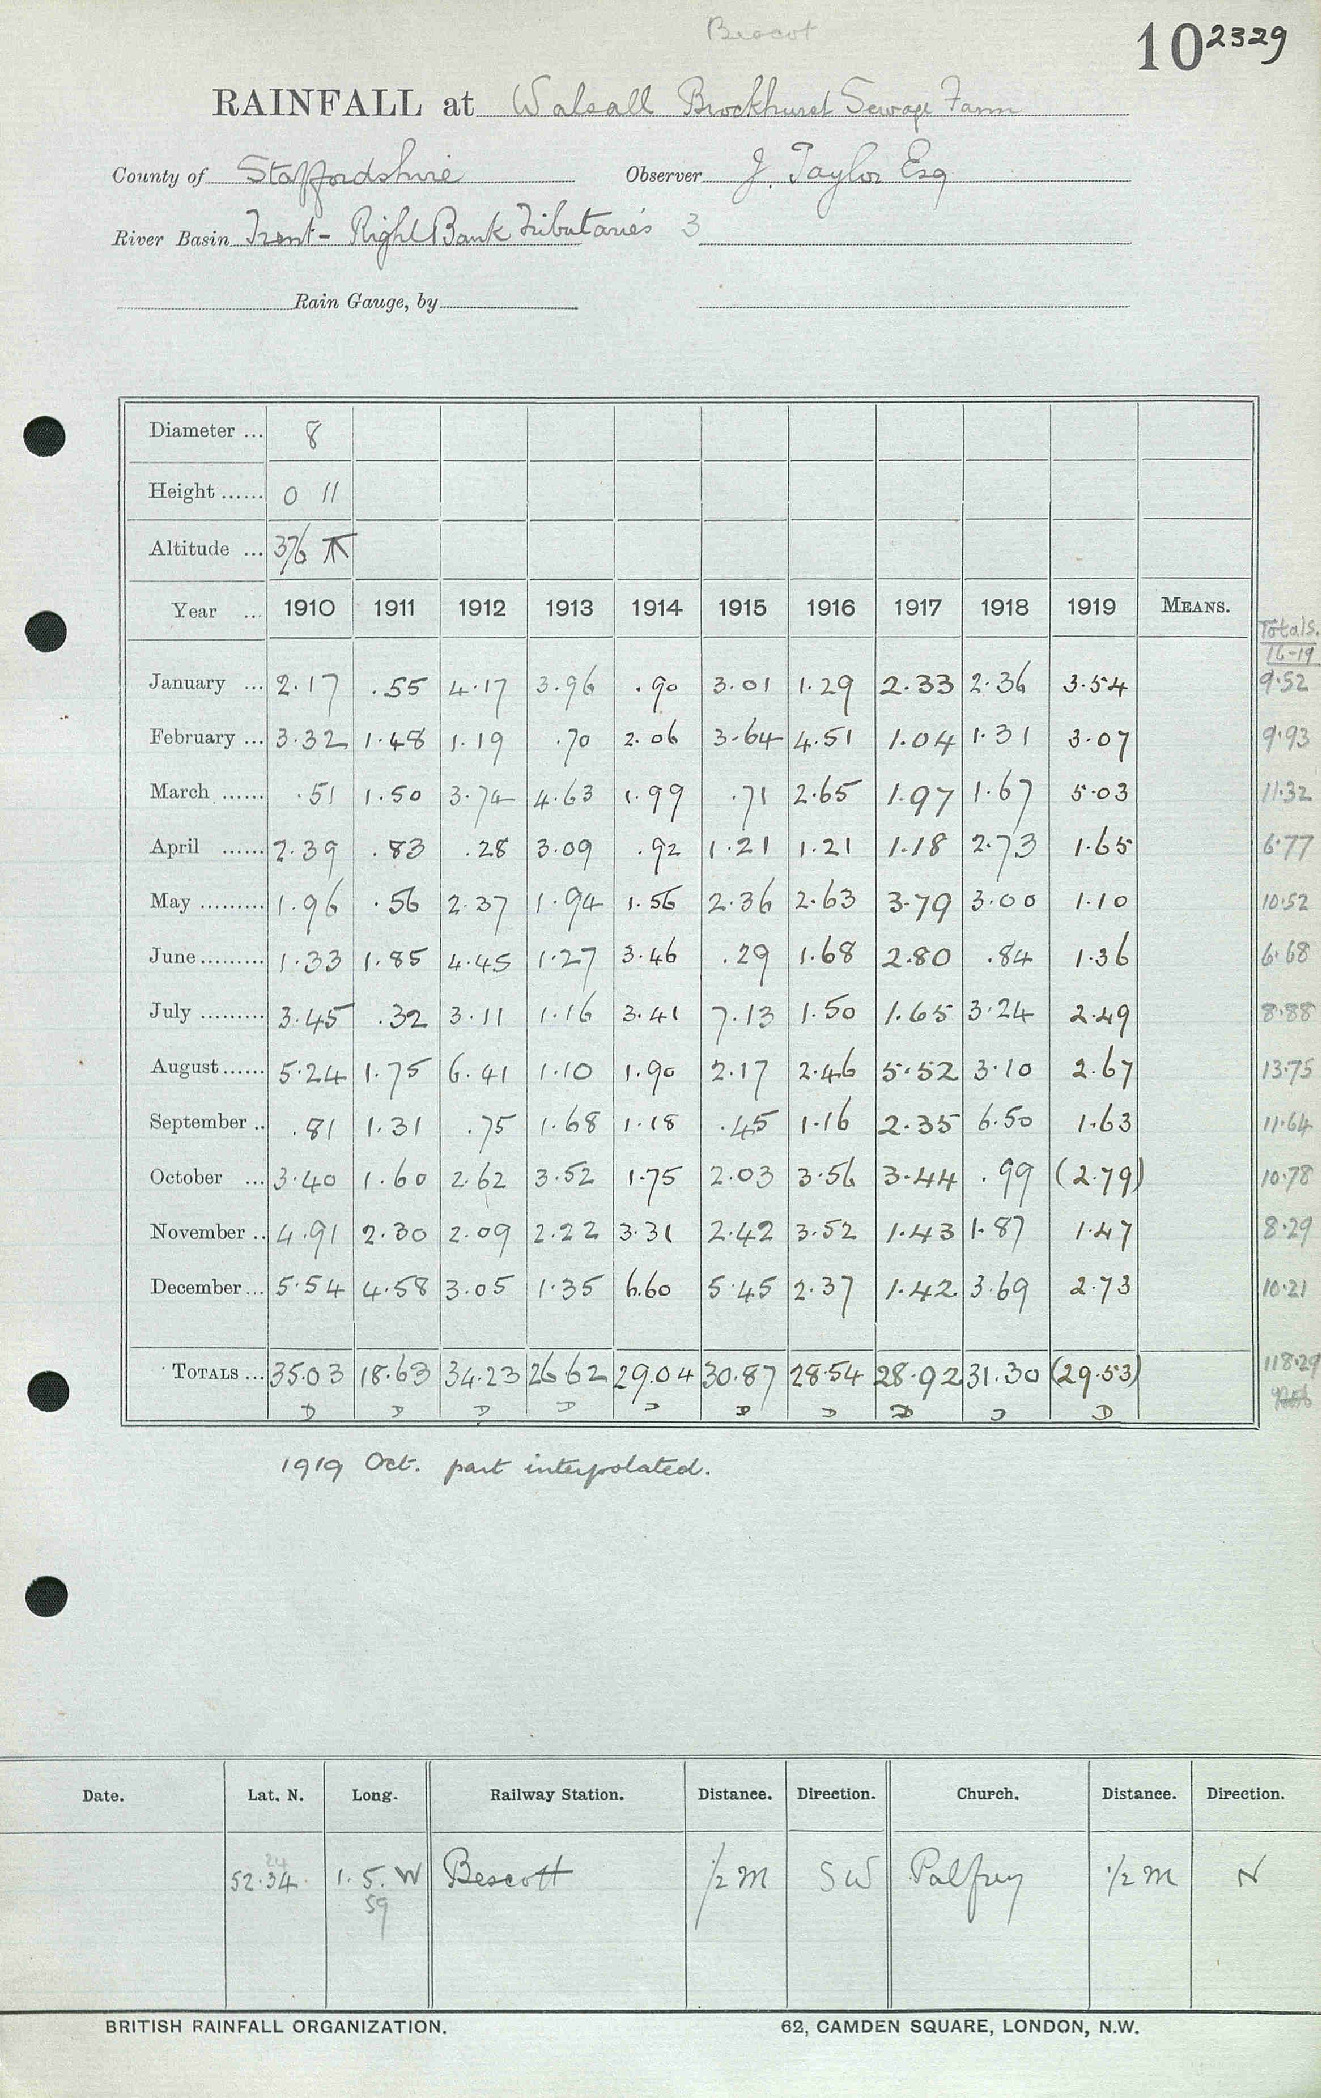 Bescot
10 2329
RAINFALL at Walsall Brockhurst Sewage Farm
County of Staffordshire Observer J. Taylor Esq
River Basin Trent - Right Bank Tributaries 3
Rain Gauge, by
Diameter ... 8
Height ...... 0 11
Altitude ... 376
Year ... 1910 1911 1912 1913 1914 1915 1916 1917 1918 1919 MEANS.
Totals.
16-19
January ... 2.17 .55 4.17 3.96 .90 3.01 1.29 2.33 2.36 3.54 9.52
February ... 3.32 1.48 1.19 .70 2.06 3.64 4.51 1.04 1.31 3.07 9.93
March ...... .51 1.50 3.74 4.63 1.99 .71 2.65 1.97 1.67 5.03 11.32
April ...... 2.39 .83 .28 3.09 .92 1.21 1.21 1.18 2.73 1.65 6.77
May ......... 1.96 .56 2.37 1.94 1.56 2.36 2.63 3.79 3.00 1.10 10.52
June ......... 1.33 1.85 4.45 1.27 3.46 .29 1.68 2.80 .84 1.36 6.68
July ......... 3.45 .32 3.11 1.16 3.41 7.13 1.50 1.65 3.24 2.49 8.88
August ...... 5.24 1.75 6.41 1.10 1.90 2.17 2.46 5.52 3.10 2.67 13.75
September .. .81 1.31 .75 1.68 1.18 .45 1.16 2.35 6.50 1.63 11.64
October ... 3.40 1.60 2.62 3.52 1.75 2.03 3.56 3.44 .99 (2.79) 10.78
November .. 4.91 2.30 2.09 2.22 3.31 2.42 3.52 1.43 1.87 1.47 8.29
December ... 5.54 4.58 3.05 1.35 6.60 5.45 2.37 1.42 3.69 2.73 10.21
TOTALS ... 35.03 18.63 34.23 26.62 29.04 30.87 28.54 28.92 31.30 (29.53) 118.29
1919 Oct. part interpolated.
Date. Lat. N. Long. Railway Station. Distance. Direction. Church. Distance. Direction.
24
52.34. 1.5.W Bescott 1/2 M SW Palfrey 1/2 M N
59
BRITISH RAINFALL ORGANIZATION. 62, CAMDEN SQUARE, LONDON, N.W.